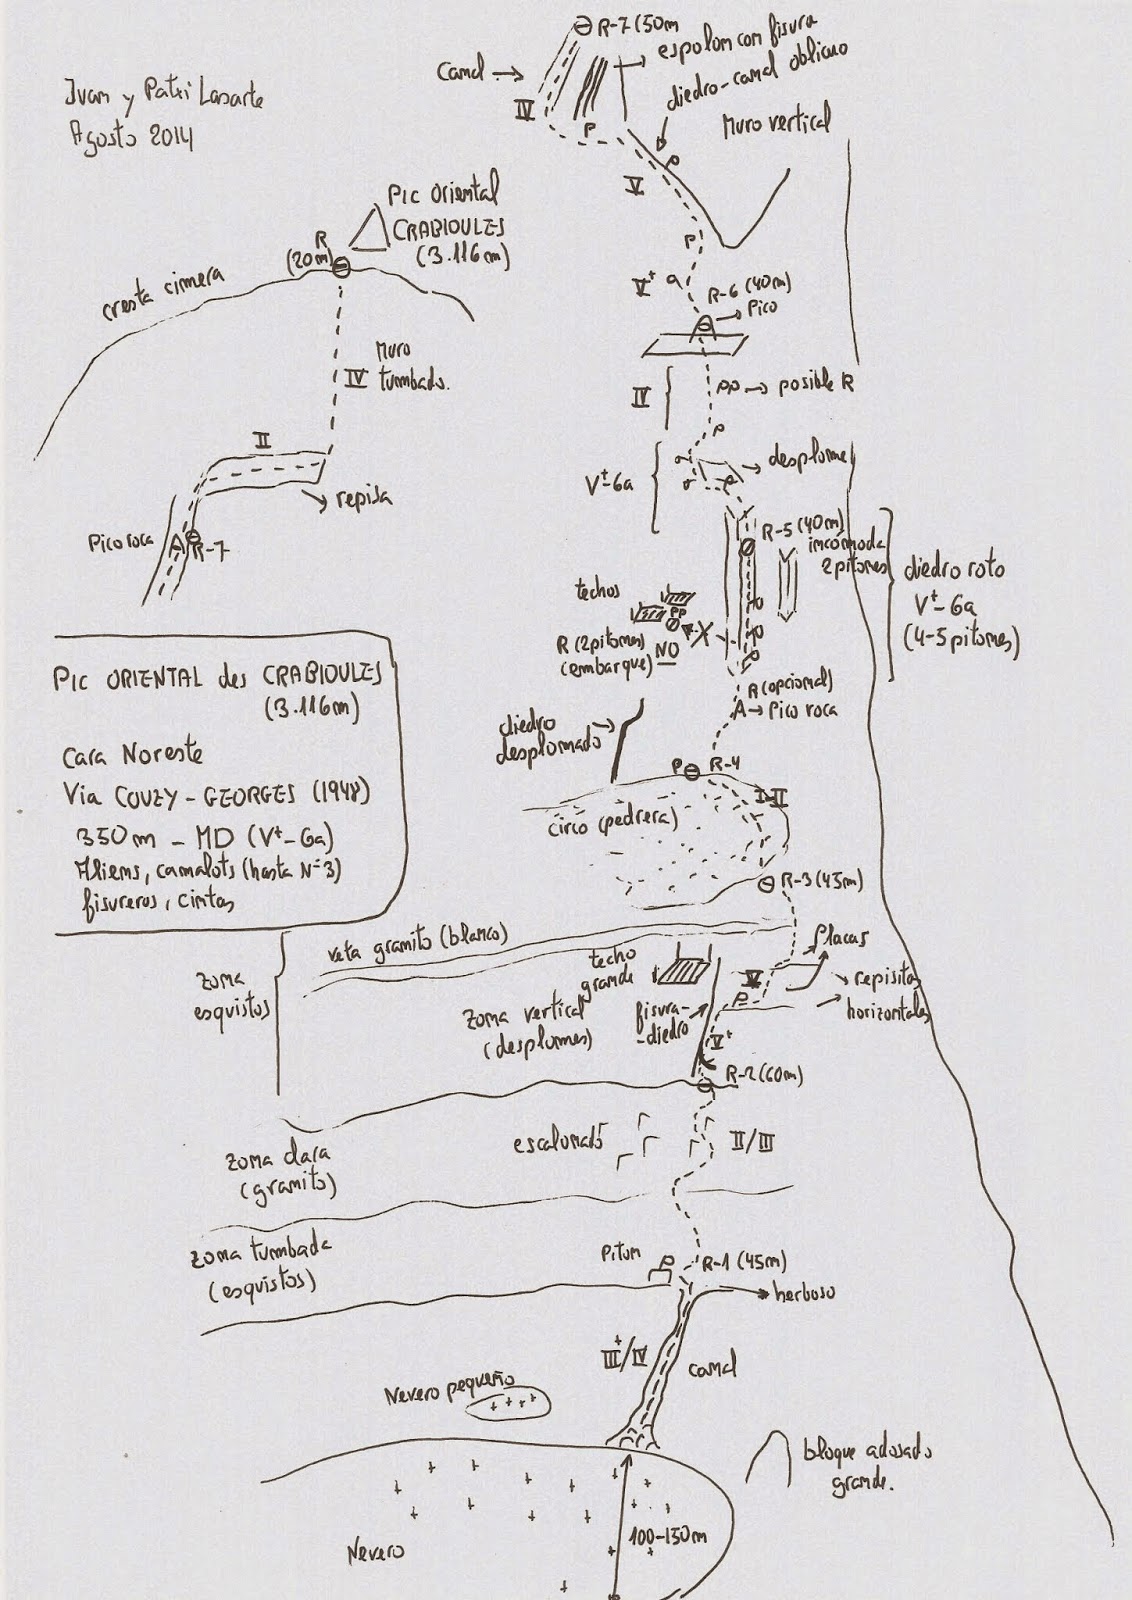 Juan y Patxi Lasarte
Agosto 2014
R-7 (50m
espolon con fisura
diedro-canal oblicuo
Muro vertical
Canal
IV
P
P
V
P
V+
R-6 (40m)
Pico
PIC Oriental
CRABIOULES
(3.116m)
R
(20m)
cresta cimera
Muro
IV tumbado.
II
repisa
Pico roca
R-7
IV
PP → posible R
P
desplome
V+-6a
P
R-5 (40m)
incómoda
2 pitones
diedro roto
V+-6a
(4-5 pitones)
techos
PP
R (2 pitones) NO
(embarque)
P
P
P
R (opcional)
Pico roca
diedro
desplomado
P R-4
I-II
circo (pedrera)
R-3 (45m)
PIC ORIENTAL des CRABIOULES
(3.116m)
Cara Noreste
Via COUZY - GEORGES (1948)
350m - MD (V+-6a)
Aliens, camalots (hasta Nº3)
fisureros, cintas
veta granito (blanco)
zona
esquistos
techo
grande
Placas
V
repisitas
horizontales
P
zona vertical
(desplomes)
fisura-
-diedro
V+
R-2 (60m)
zona clara
(granito)
escalonado
II/III
zona tumbada
(esquistos)
Piton
P
R-1 (45m)
herboso
III+/IV
canal
Nevero pequeño
bloque adosado
grande.
Nevero
100-150m